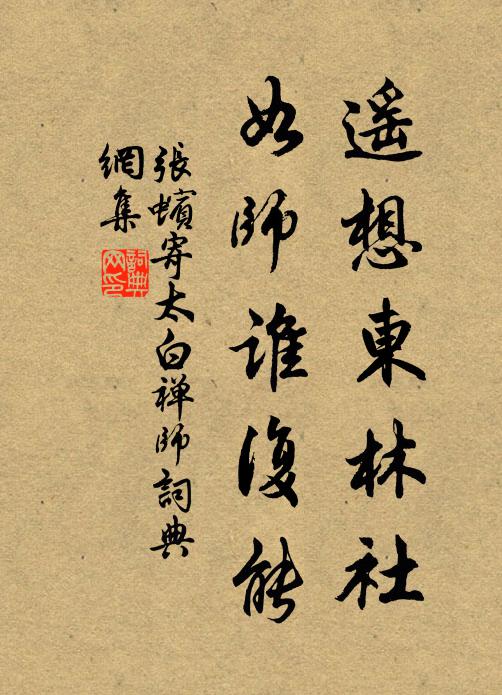 遥想東林社
如師誰復能
張蠙寄太白禅師詞典
網集
詞典
网印